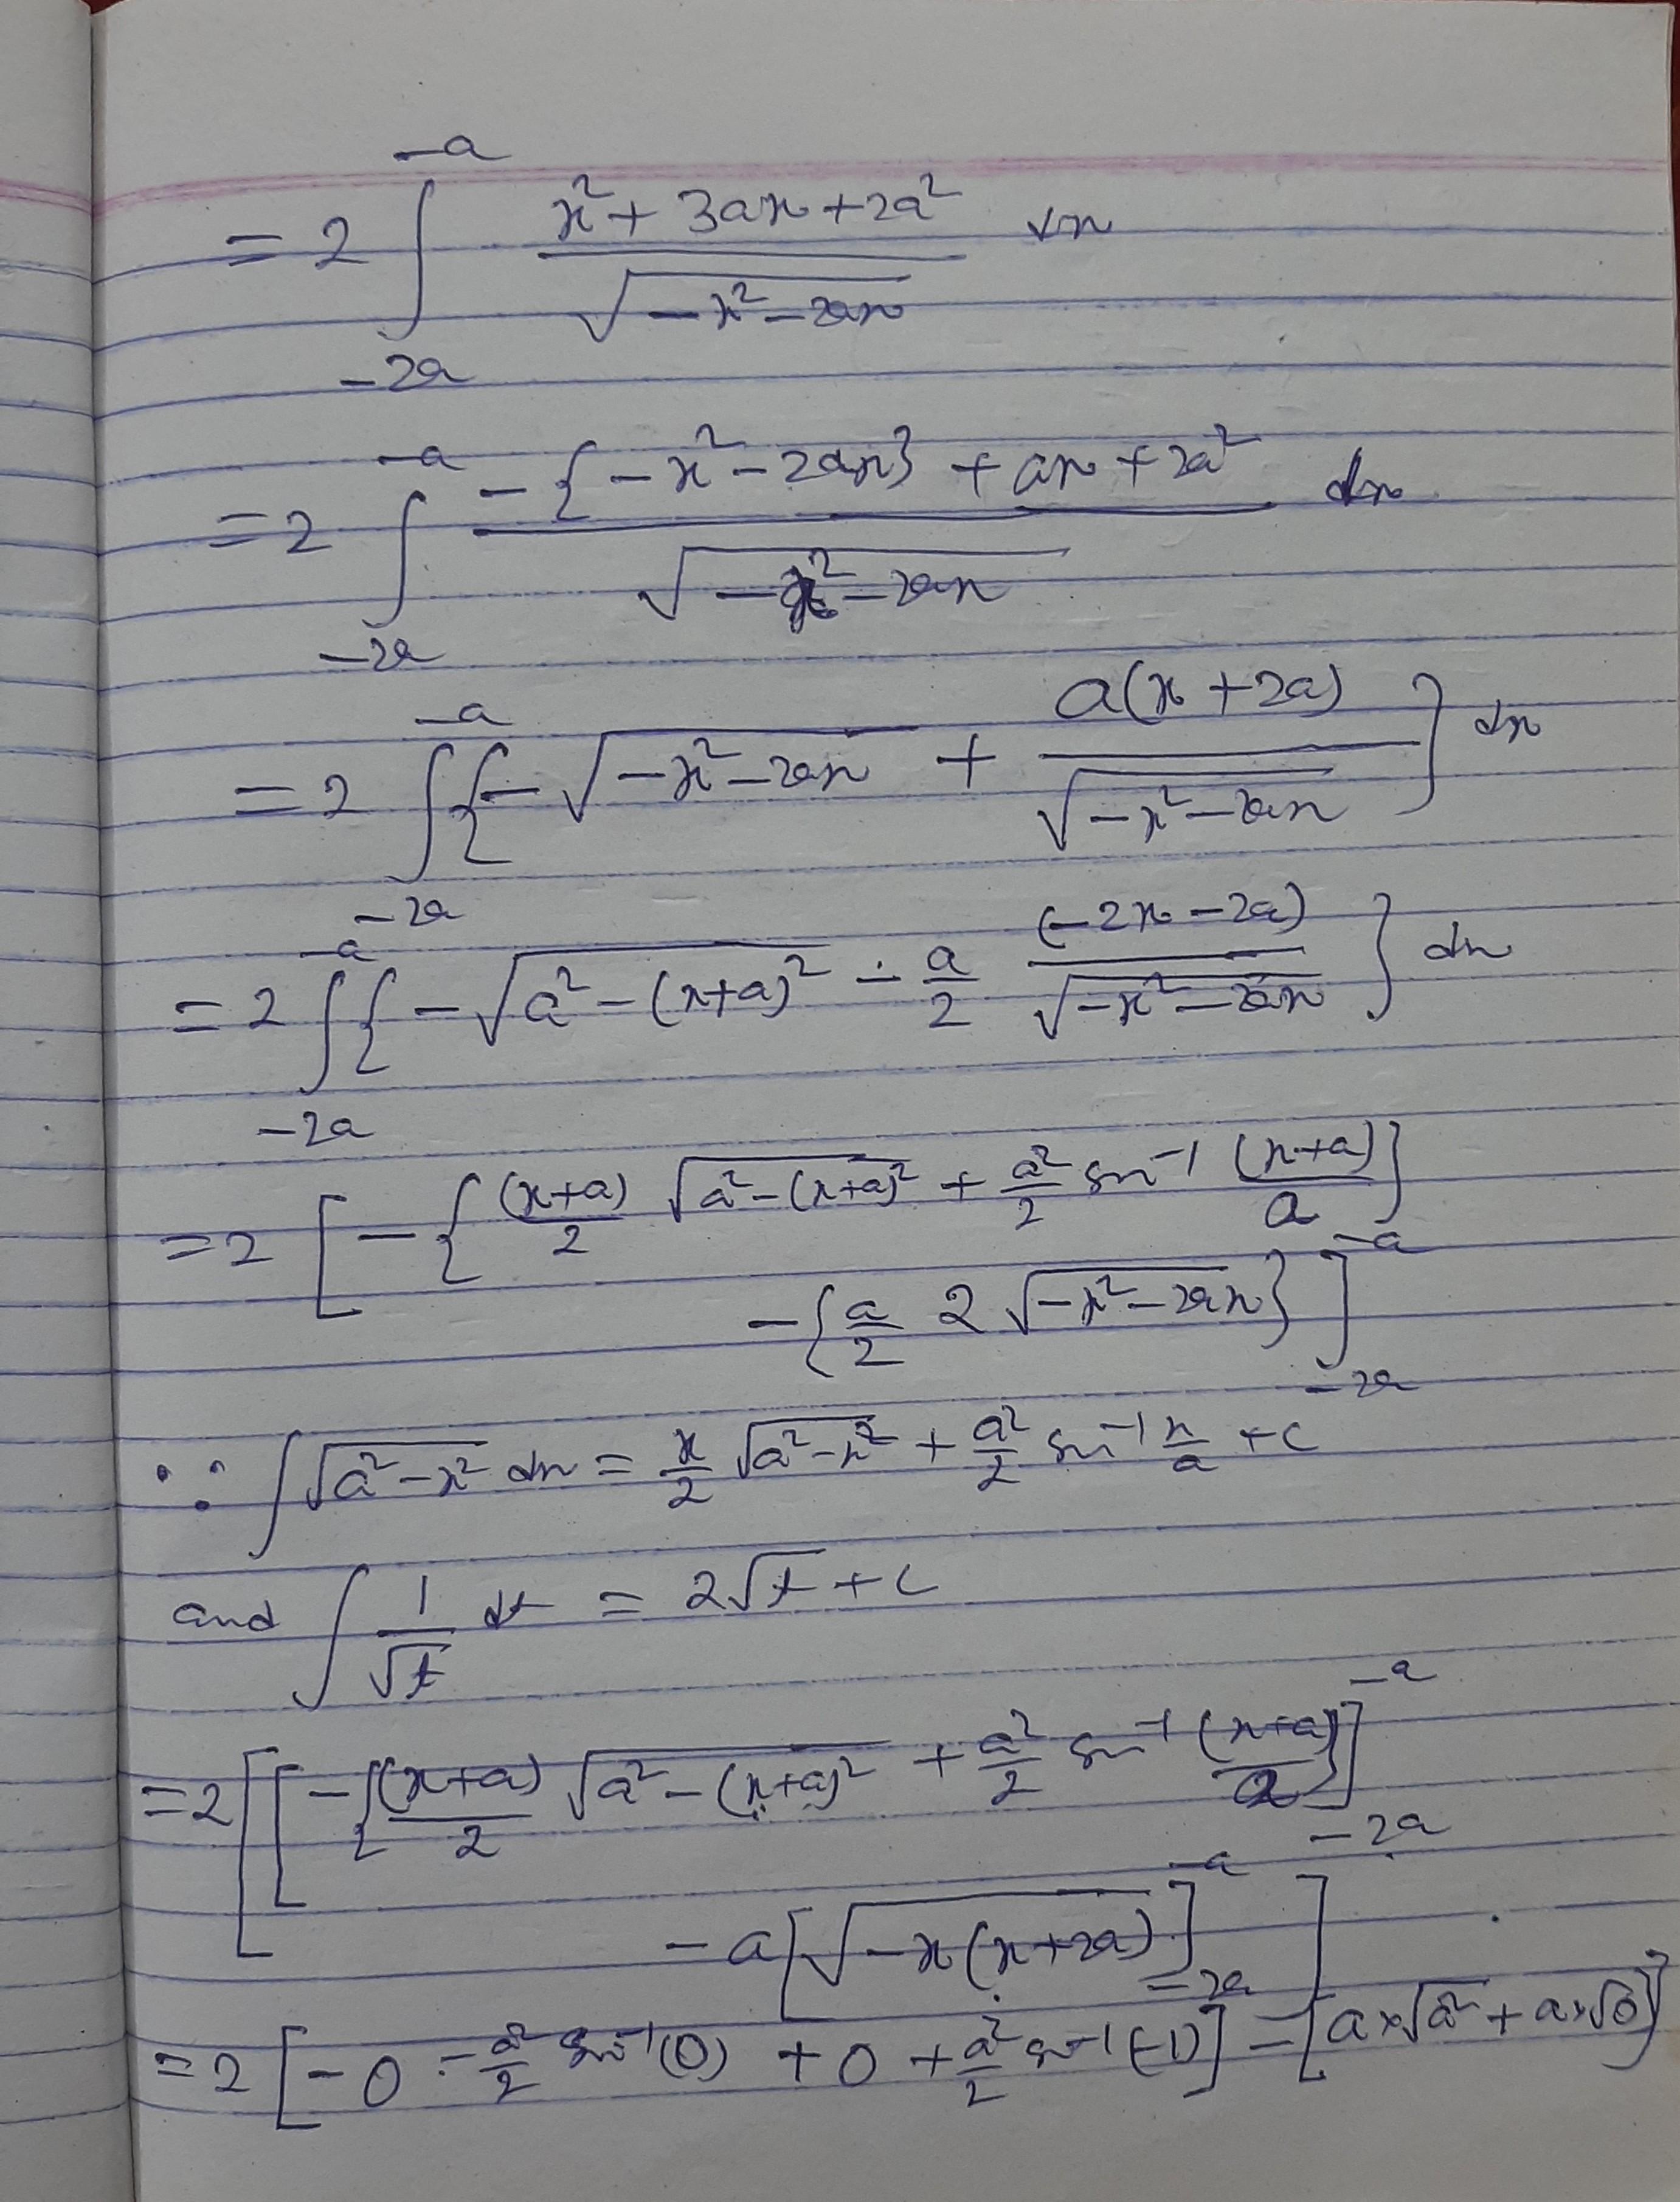 = 2 ∫_{-2a}^{-a} (x² + 3ax + 2a²) / √(-x² - 2ax) dx
= 2 ∫_{-2a}^{-a} (-{-x² - 2ax} + ax + 2a²) / √(-x² - 2ax) dx
= 2 ∫_{-2a}^{-a} {-√(-x² - 2ax) + a(x + 2a) / √(-x² - 2ax)} dx
= 2 ∫_{-2a}^{-a} {-√(a² - (x+a)²) - a/2 (-2x - 2a) / √(-x² - 2ax)} dx
= 2 [-{(x+a)/2 √(a² - (x+a)²) + a²/2 sin⁻¹ (x+a)/a}
- {a/2 2 √(-x² - 2ax)}]_{-2a}^{-a}
∵ ∫ √(a² - x²) dx = x/2 √(a² - x²) + a²/2 sin⁻¹ x/a + c
and ∫ 1/√t dt = 2√t + c
= 2 [[-{(x+a)/2 √(a² - (x+a)²) + a²/2 sin⁻¹ (x+a)/a}]_{-2a}^{-a}
- a [√(-x(x+2a))]_{-2a}^{-a}]
= 2 [-0 - a²/2 sin⁻¹(0) + 0 + a²/2 sin⁻¹(-1)] - [a×√a² + a×√0]